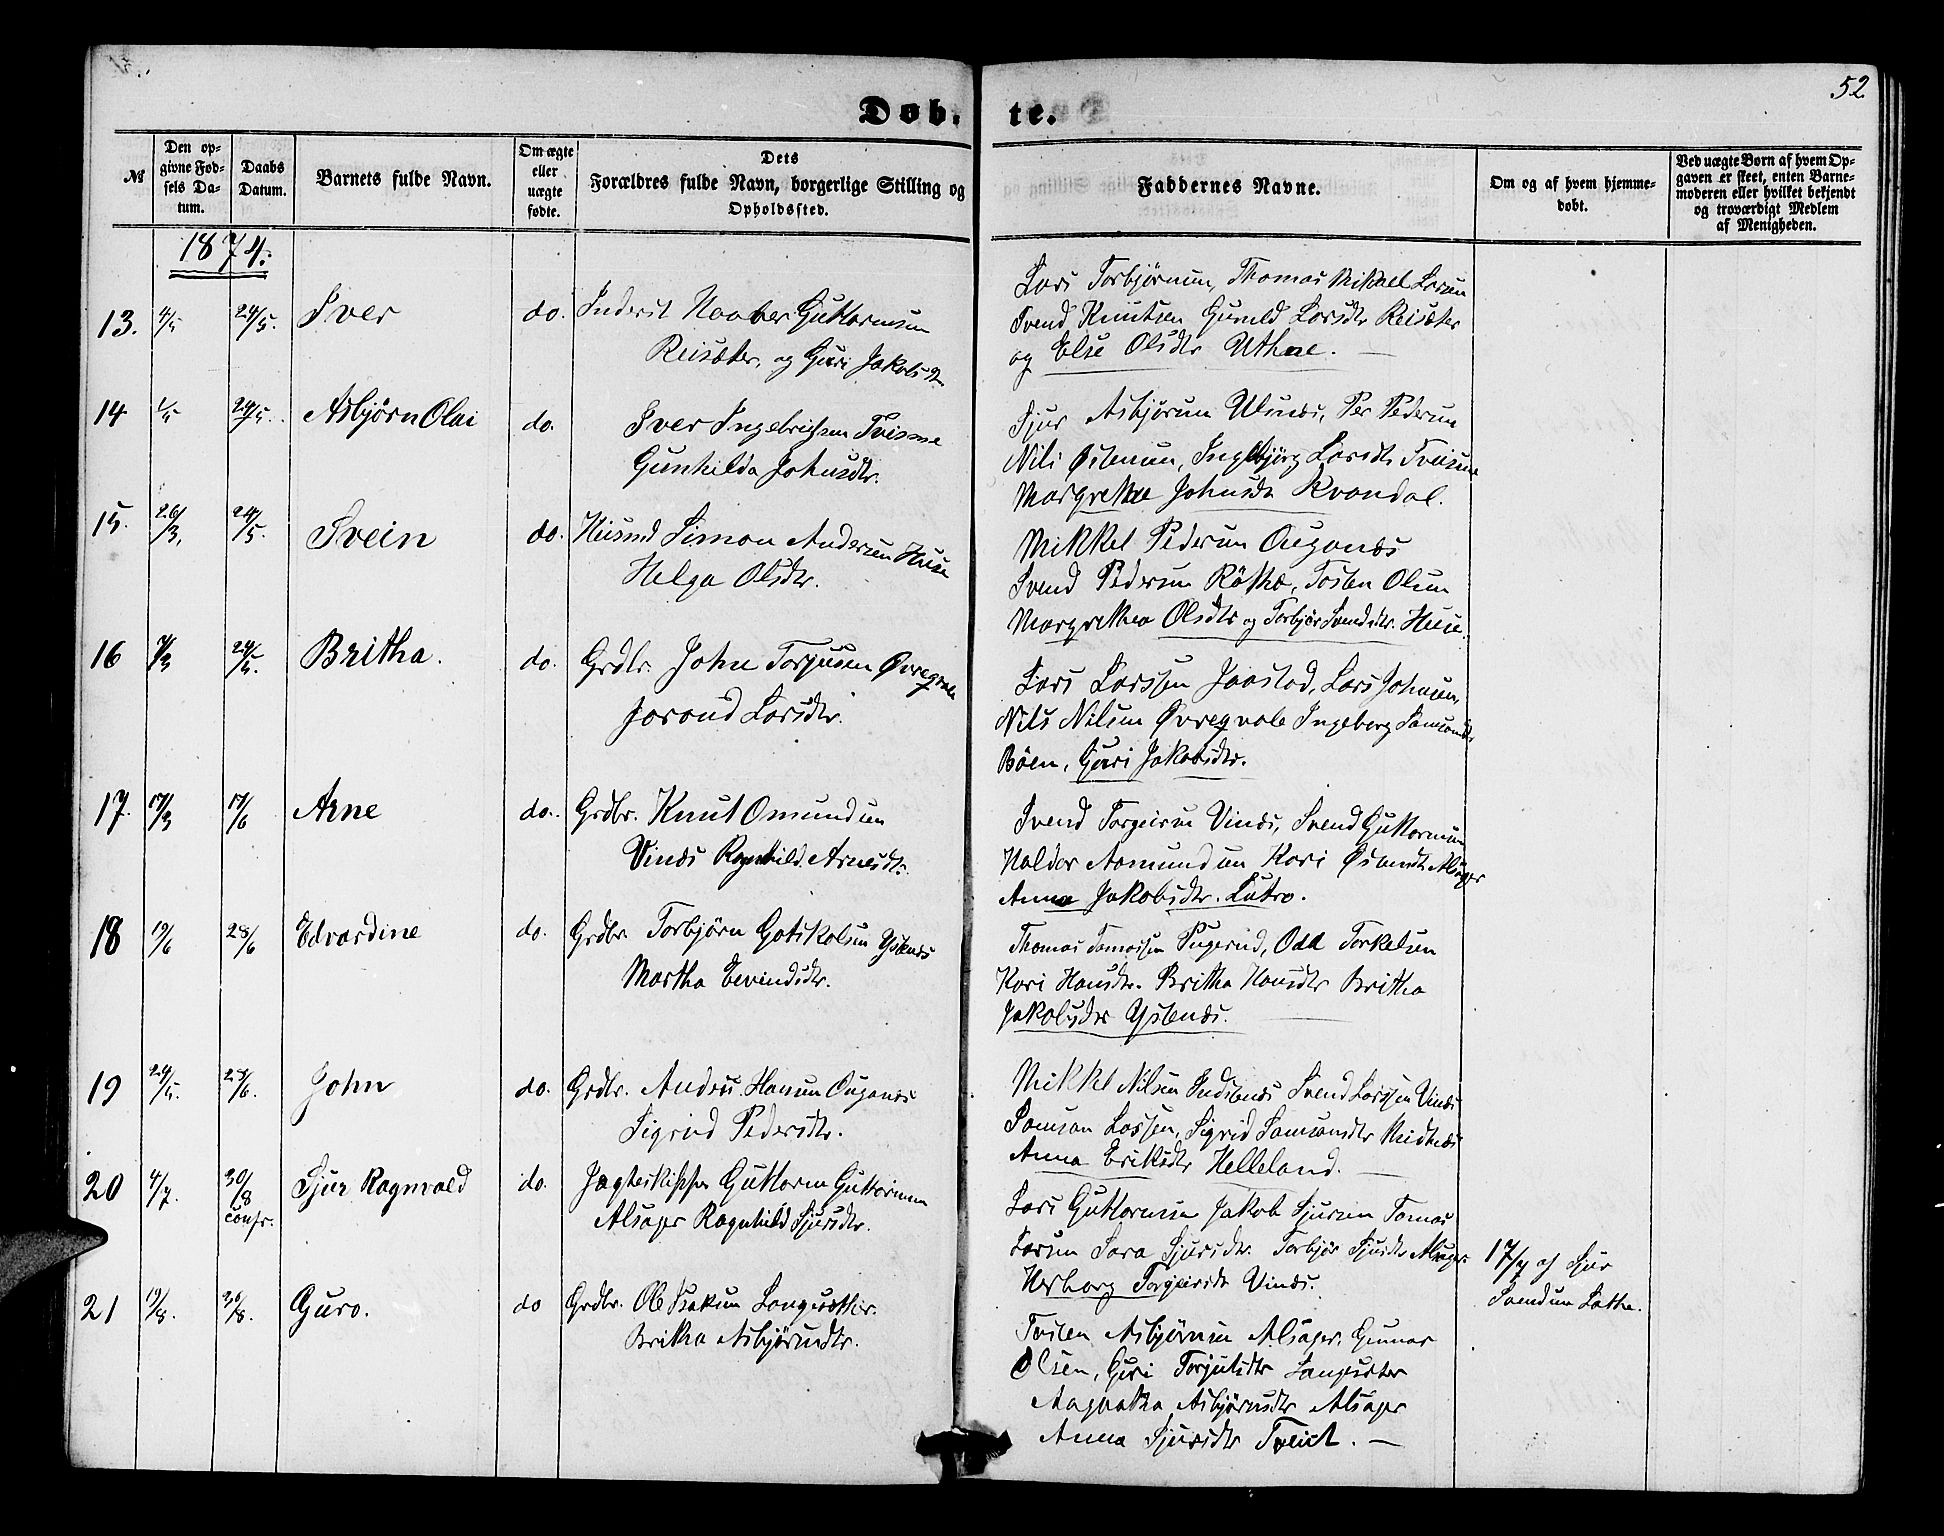 52
Døb. te.
№
Den op-
givne Fød-
sels Da-
tum.
Daabs
Datum.
Barnets fulde Navn.
Om ægte
eller
uægte
fødte.
Dets
Forældres fulde Navn, borgerlige Stilling og
Opholdssted.
Faddernes Navne.
Om og af hvem hjemme-
døbt.
Ved uægte Børn af hvem Op-
gaven er skeet, enten Barne-
moderen eller hvilket bekjendt
og troværdigt Medlem
af Menigheden.
1874.
13. 4/5 24/5. Iver do. Inderst Haaver Guttormsen
Reisæter, og Guri Jakobsdtr
Lars Torbjørnsen, Thomas Mikkel Larsen
Svend Knutsen Guruld Larsdtr Reisæter
og Else Olsdtr Uthne.
14 1/5 24/5. Asbjørn Olai do. Iver Ingebrigtsen Tveisme
Gunhilda Johnsdtr.
Sjur Asbjørnsen Ulsnæs, Per Pedersen
Nils Østensen, Ingebjørg Larsdtr Tveisme
Margrethe Johnsdtr Kvandal.
15. 26/3. 24/5. Svein do. Husmd Simon Andersen Huse
Helga Olsdtr.
Mikkel Pedersen Ouganæs
Svend Pedersen Røthe, Tosten Olsen
Margretha Olsdtr og Torbjør Svendsdtr. Huse.
16 7/3 24/5. Britha. do. Grdbr. John Torjusen Øvreqvale
Jorond Larsdtr.
Lars Larssen Jaastad, Lars Johnsen,
Nils Nilsen Øvreqvale Ingeborg Samsonsdtr
Böen, Guri Jakobsdtr.
17. 17/3 17/6 Arne do. Grdbr. Knut Omundsen
Vinæs Ragnhild Arnesdtr.
Svend Torgeirsen Vinæs, Svend Guttormsen
Haldor Aamundsen Kari Østensdtr Alsager
Anna Jakobsdtr. Lutro.
18 19/6 28/6 Edvardine do. Grdbr. Torbjørn Gotskalsen Ystenæs
Martha Eevindsdtr.
Thomas Tomassen Pugerud, Odd Torkelsen
Kari Hansdtr. Britha Hansdtr Britha
Jakobsdtr Ystenæs.
19 24/5. 28/6. John do. Grdbr. Anders Hansen Ouganæs
Sigrid Pedersdtr.
Mikkel Nilsen Indstenæs Svend Larssen Vinæs
Samson Lassen, Sigrid Samsonsdtr Midtnæs
Anna Eriksdtr Helleland.
20 4/7. 30/8 confr. Sjur Ragnvald do. Jagteskipper Guttorm Guttormsen
Alsager Ragnhild Sjursdtr.
Lars Guttormsen Jakob Sjursen Tomas
Larsen Sara Sjursdtr. Torbjør Sjursdtr Alsager.
Herborg Torgeirsdtr Vinæs.
17/7 af Sjur
Svendsen Lothe.
21 19/8. 30/8. Guro. do Grdbr. Ole Isaksen Langesæther.
Britha Asbjørnsdtr.
Tosten Asbjørnsen Alsager, Gunnar
Olsen, Guri Torjulsdtr Langesæter
Aagaatha Asbjørnsdtr Alsager
Anna Sjursdtr Tveit.